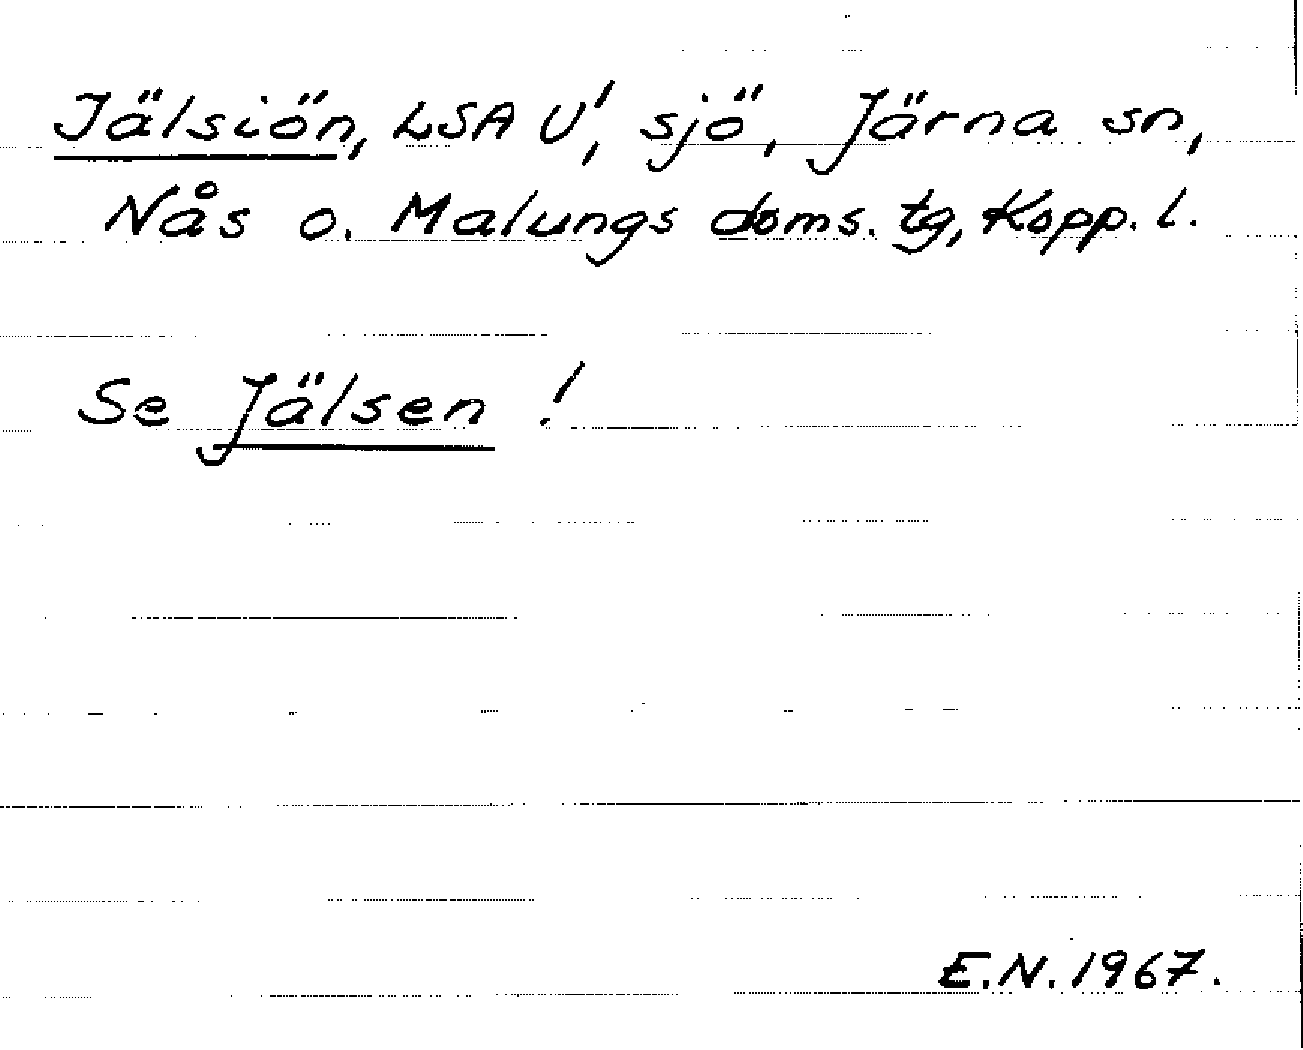 Jälsiön, LSA U', sjö, Järna sn,
Nås o. Malungs doms. tg, Kopp. l.
Se Jälsen !
E.N. 1967.